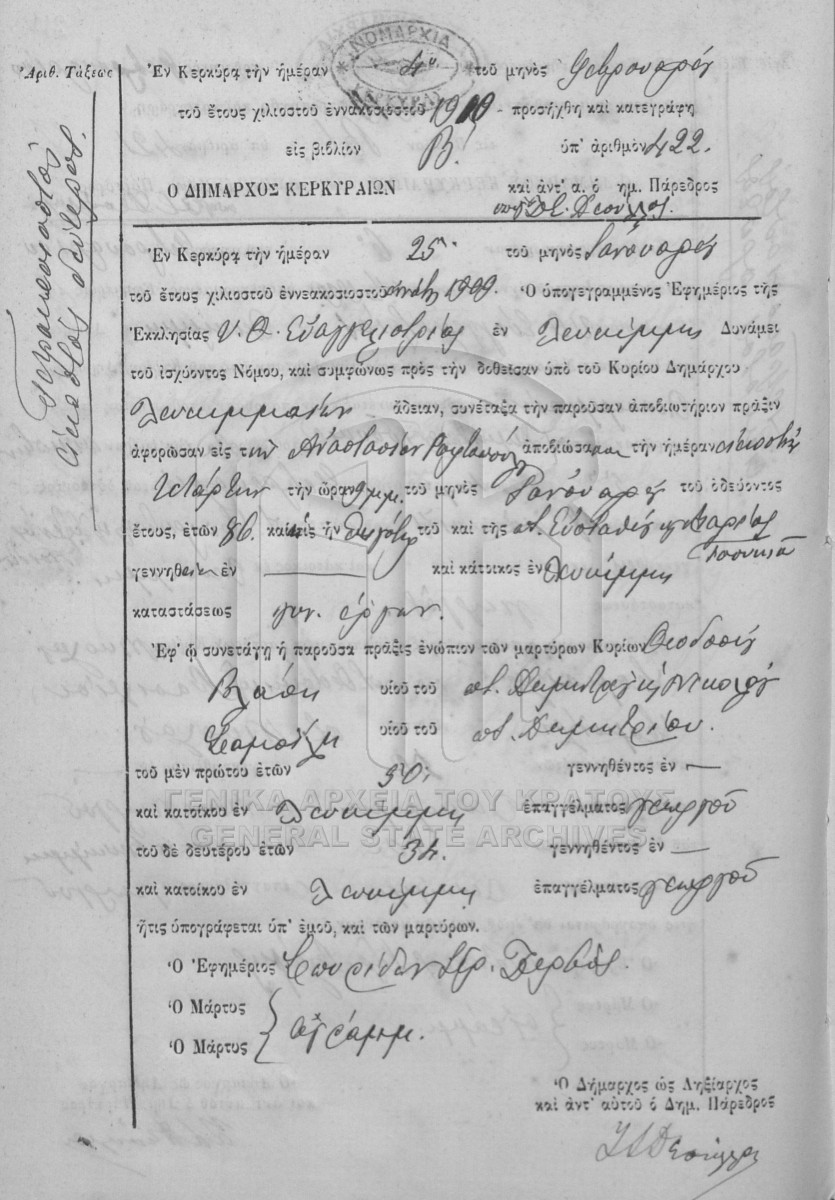 ΝΟΜΑΡΧΙΑ
ΚΕΡΚΥΡΑΣ
Ἀριθ. Τάξεως
Ἐν Κερκύρᾳ τὴν ἡμέραν 4ῃ τοῦ μηνὸς Φεβρουαρίου
τοῦ ἔτους χιλιοστοῦ ἐννακοσιοστοῦ 1910 προσήχθη καὶ κατεγράφη
εἰς βιβλίον Β' ὑπ' ἀριθμὸν 422.
Ο ΔΗΜΑΡΧΟΣ ΚΕΡΚΥΡΑΙΩΝ καὶ ἀντ' α. ὁ δημ. Πάρεδρος
τετρακοσιοστὸν
εἰκοστὸν δεύτερον.
Ἐν Κερκύρᾳ τὴν ἡμέραν 25ῃ τοῦ μηνὸς Ἰανουαρίου
τοῦ ἔτους χιλιοστοῦ ἐννεακοσιοστοῦ ἐνάτου 1909. Ὁ ὑπογεγραμμένος Ἐφημέριος τῆς
Ἐκκλησίας Υ. Θ. Εὐαγγελιστρίας ἐν Λευκίμμῃ Δυνάμει
τοῦ ἰσχύοντος Νόμου, καὶ συμφώνως πρὸς τὴν δοθεῖσαν ὑπὸ τοῦ Κυρίου Δημάρχου
Λευκιμμαίων ἄδειαν, συνέταξα τὴν παροῦσαν ἀποβιωτήριον πρᾶξιν
ἀφορῶσαν εἰς τὴν Ἀναστασίαν ἀποβιώσασαν τὴν ἡμέραν εἰκοστὴν
τετάρτην τὴν ὥραν 9 μ.μ. τοῦ μηνὸς Ἰανουαρίου τοῦ ὁδεύοντος
ἔτους, ἐτῶν 86. καὶ ἥτις ἦν θυγάτηρ τοῦ καὶ τῆς ποτ. Εὐσταθίου Μαρίας
γεννηθεῖσα ἐν — καὶ κάτοικος ἐν Λευκίμμῃ
καταστάσεως
Ἐφ' ᾧ συνετάγη ἡ παροῦσα πρᾶξις ἐνώπιον τῶν μαρτύρων Κυρίων Θεοδοσίου
Βλάση υἱοῦ τοῦ ποτ. Δημητρίου καὶ Νικολάου
υἱοῦ τοῦ ποτ. Δημητρίου.
τοῦ μὲν πρώτου ἐτῶν 50, γεννηθέντος ἐν —
ΓΕΝΙΚΑ ΑΡΧΕΙΑ ΤΟΥ ΚΡΑΤΟΥΣ
καὶ κατοίκου ἐν Λευκίμμῃ ἐπαγγέλματος γεωργοῦ
GENERAL STATE ARCHIVES
τοῦ δὲ δευτέρου ἐτῶν 34. γεννηθέντος ἐν —
καὶ κατοίκου ἐν Λευκίμμῃ ἐπαγγέλματος γεωργοῦ
ἥτις ὑπογράφεται ὑπ' ἐμοῦ, καὶ τῶν μαρτύρων.
Ὁ Ἐφημέριος Σπυρίδων
Ὁ Μάρτυς
Ὁ Μάρτυς
ἀγράμμ.
Ὁ Δήμαρχος ὡς Ληξίαρχος
καὶ ἀντ' αὐτοῦ ὁ Δημ. Πάρεδρος